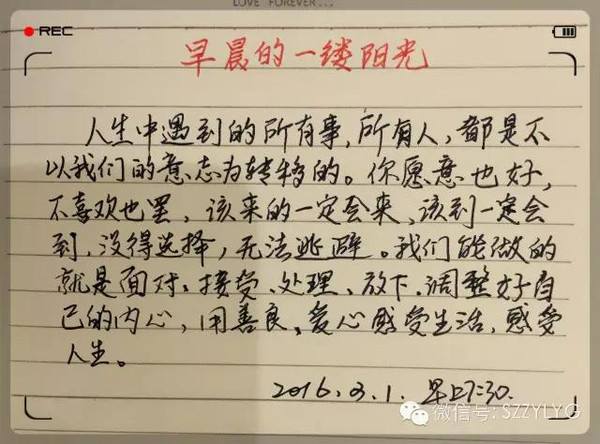 LOVE FOREVER...
REC
早晨的一缕阳光
人生中遇到的所有事,所有人,都是不
以我们的意志为转移的。你愿意也好,
不喜欢也罢,该来的一定会来,该到一定会
到,没得选择,无法逃避。我们能做的
就是面对、接受、处理、放下、调整好自
己的内心,用善良、爱心感受生活,感受
人生。
2016.3.1.早日7:30.
微信号: SZZYLYG